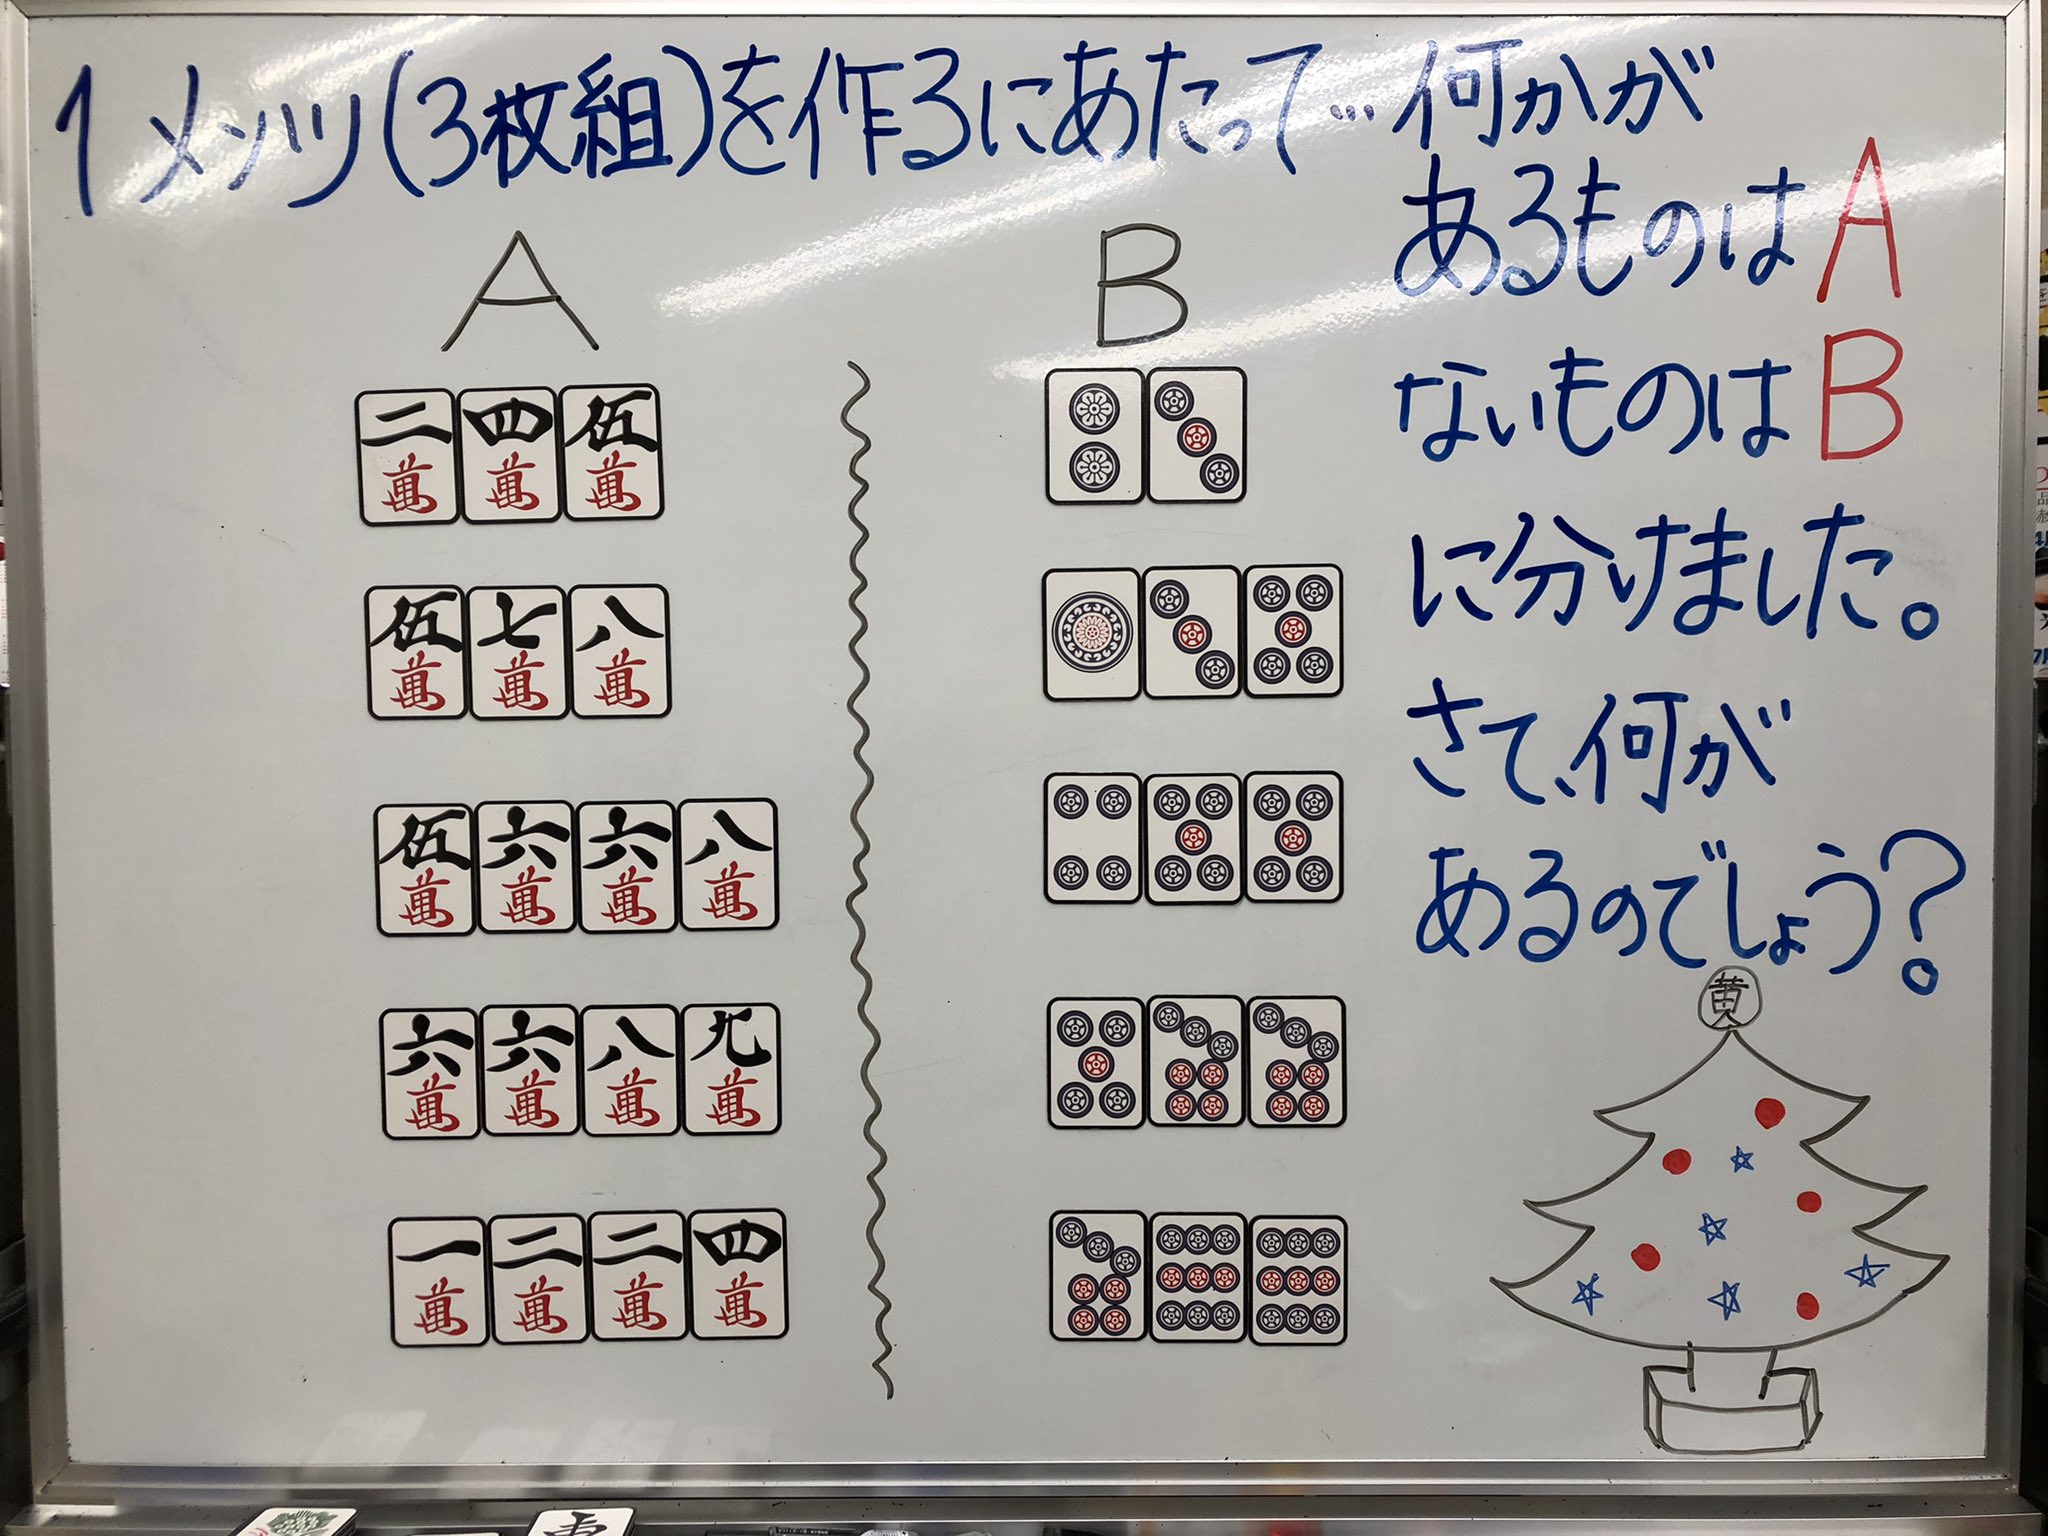 1メンツ(3枚組)を作るにあたって…何かが
あるものはA
ないものはB
に分けました。
さて、何が
あるのでしょう?
A
B
二萬 四萬 伍萬
伍萬 七萬 八萬
伍萬 六萬 六萬 八萬
六萬 六萬 八萬 九萬
一萬 二萬 二萬 四萬
黄